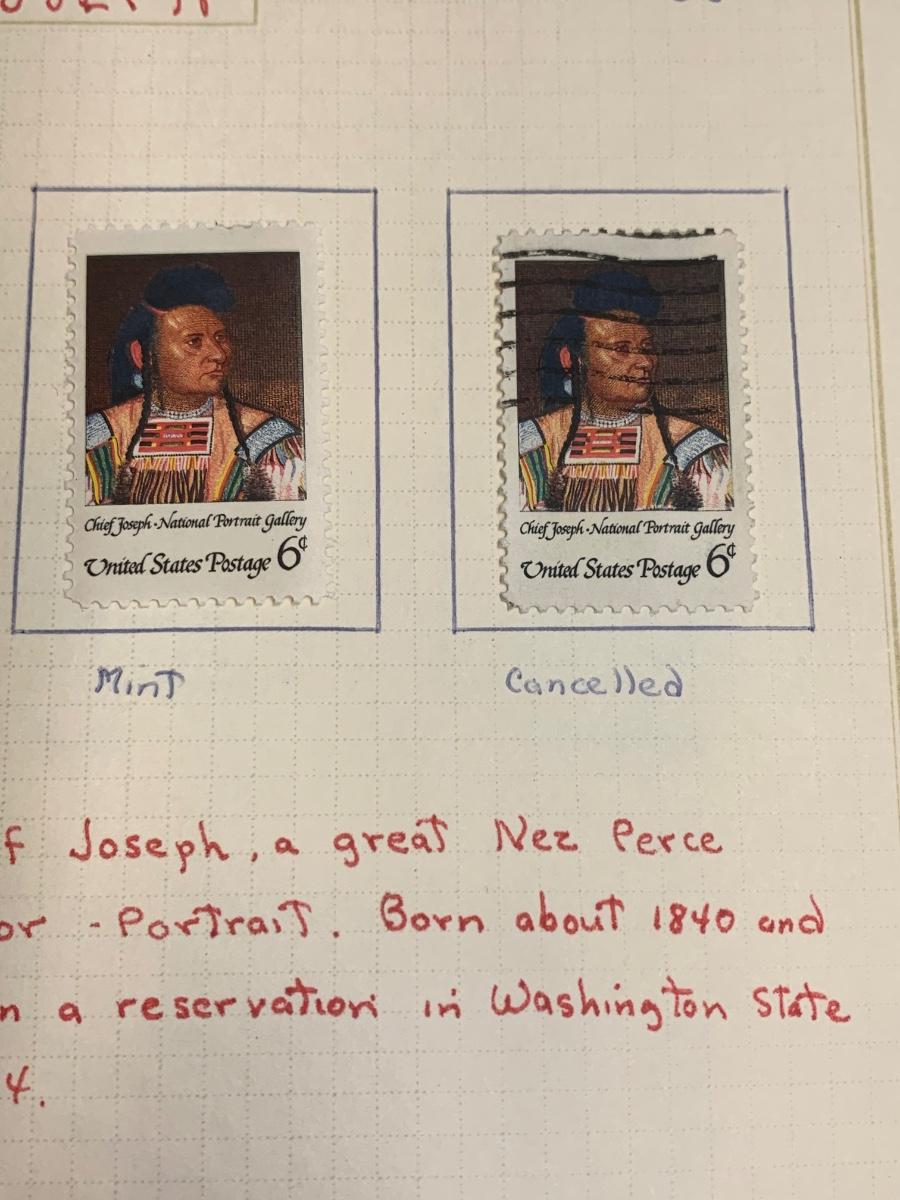 Chief Joseph - National Portrait Gallery
United States Postage 6¢
Chief Joseph - National Portrait Gallery
United States Postage 6¢
Mint
Cancelled
f Joseph, a great Nez Perce
or - Portrait. Born about 1840 and
n a reservation in Washington State
4.